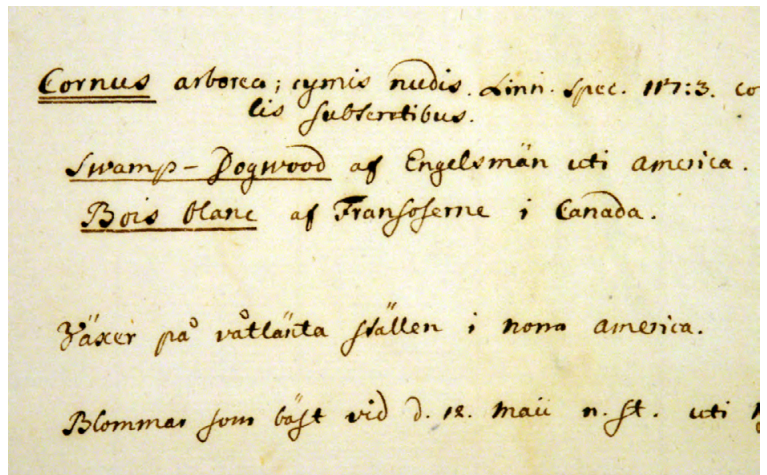 Cornus arborea; cymis nudis. Linn. Spec. 117:3. co
lis subsertibus.
Swamp-Dogwood af Engelsmän uti america.
Bois blanc af Fransoserne i Canada.
Växer på våtlänta ställen i norra america.
Blommar som bäst vid d. 12. Maii n. st. uti